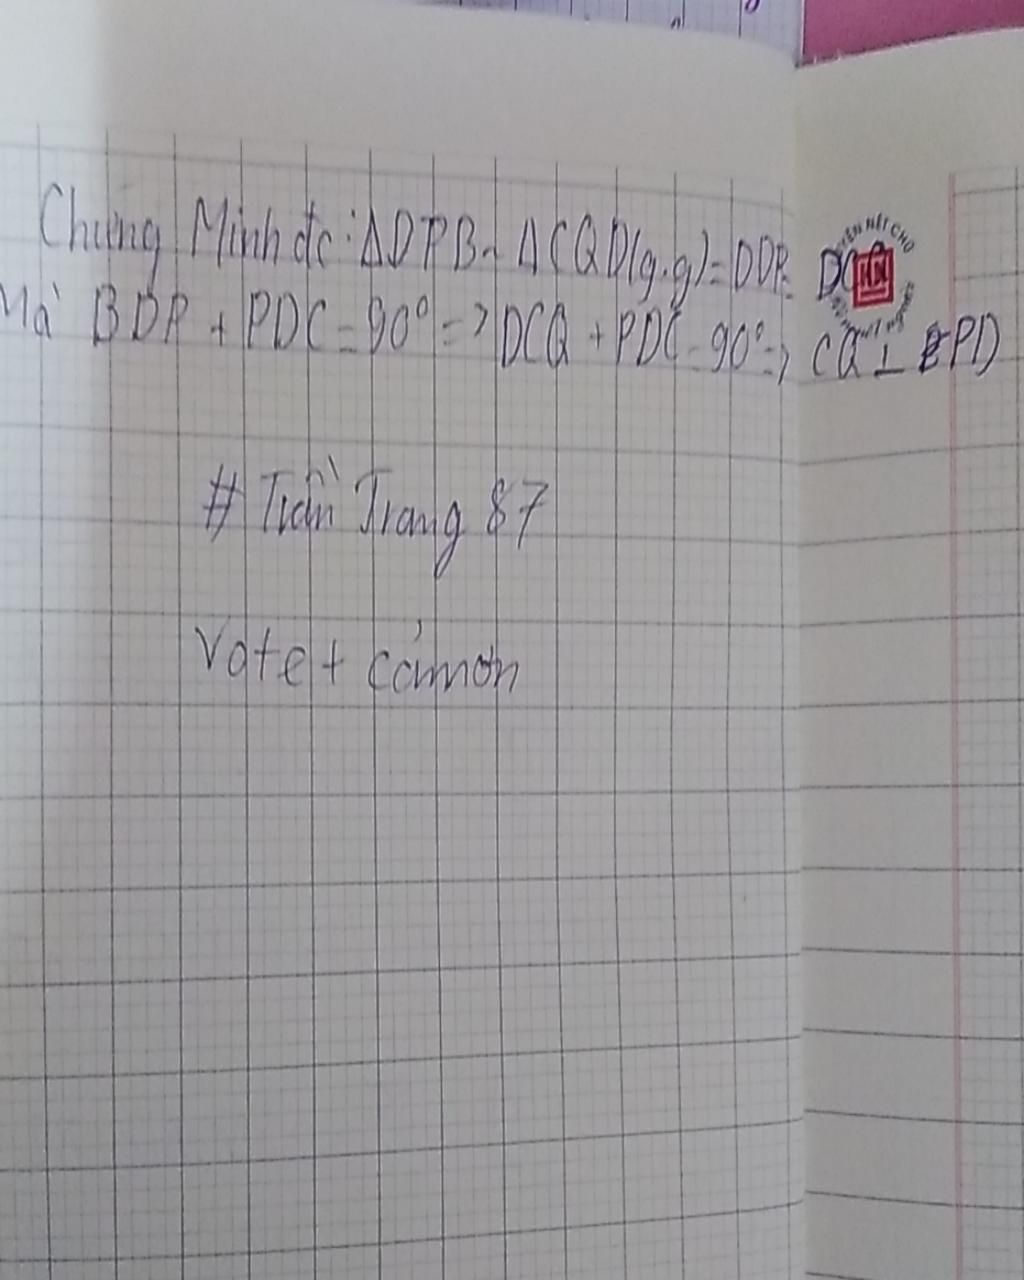 Chứng Minh đc: ΔDPB ~ ΔCQD(g.g) = DDP = DCQ
Mà BDP + PDC = 90° => DCQ + PDC = 90° => CQ ⊥ PD
# Trần Trang 87
Vote + cảm ơn